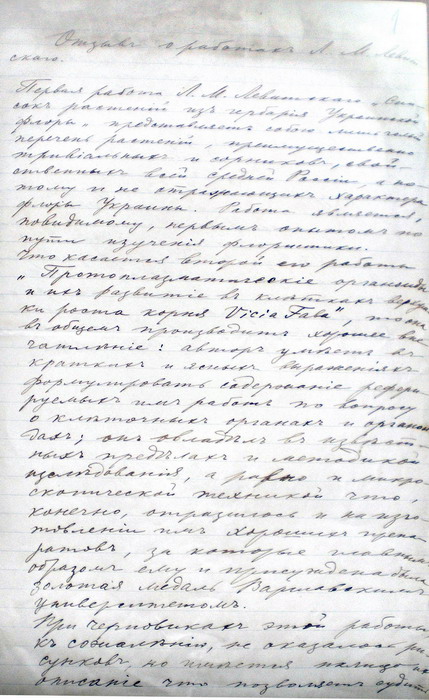 Отзывъ о работахъ Л. М. Леви
скаго.
Первая работа Л. М. Левитскаго „Спи
сокъ растеній изъ гербарія Украинской
флоры“ представляетъ собою лишь голый
перечень растеній, преимущественно
тривіальныхъ и сорниковъ, свой
ственныхъ всей средней Россіи, а по
тому и не отражающихъ характера
флоры Украины. Работа является,
повидимому, первымъ опытомъ по
пути изученія флористики.
Что касается второй его работы
„Протоплазматическіе органоиды
и ихъ развитіе въ клѣткахъ верхуш
ки роста корня Vicia Faba“, то она
въ общемъ производитъ хорошее впе
чатлѣніе: авторъ умѣетъ въ
краткихъ и ясныхъ выраженіяхъ
формулировать содержаніе рефери
руемыхъ имъ работъ по вопросу
о клѣточныхъ органахъ и органои
дахъ; онъ овладѣлъ въ извѣст
ныхъ предѣлахъ и методикой
изслѣдованія, а равно и микро
скопической техникой что,
конечно, отразилось и на изго
товленіи имъ хорошихъ препа
ратовъ, за которые главнымъ
образомъ ему и присуждена была
золотая медаль Варшавскимъ
Университетомъ.
При черновикахъ этой работы
къ сожалѣнію, не оказалось ри
сунковъ, но имѣется налицо их
описаніе что позволяетъ судить